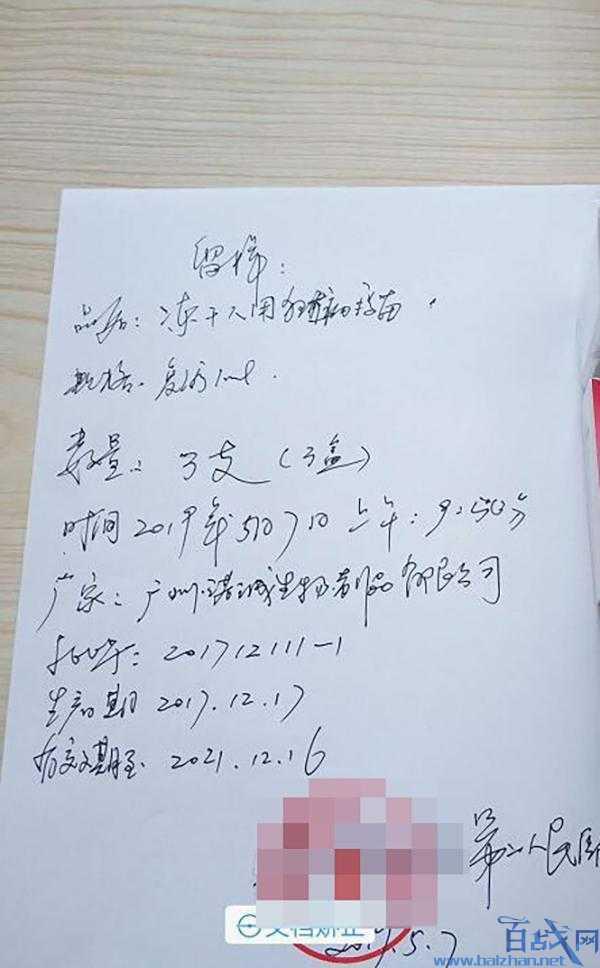 留样:
品名:冻干人用狂犬病疫苗.
规格. 复溶1ml.
数量: 3支(3盒)
时间 2019年5月7日上午:9:50分
厂家:广州诺诚生物制品有限公司
批号: 201712111-1
生产日期 2017.12.17
有效期至 2021.12.16
第二人民医
文档矫正
2019.5.7
百战网
www.baizhan.net